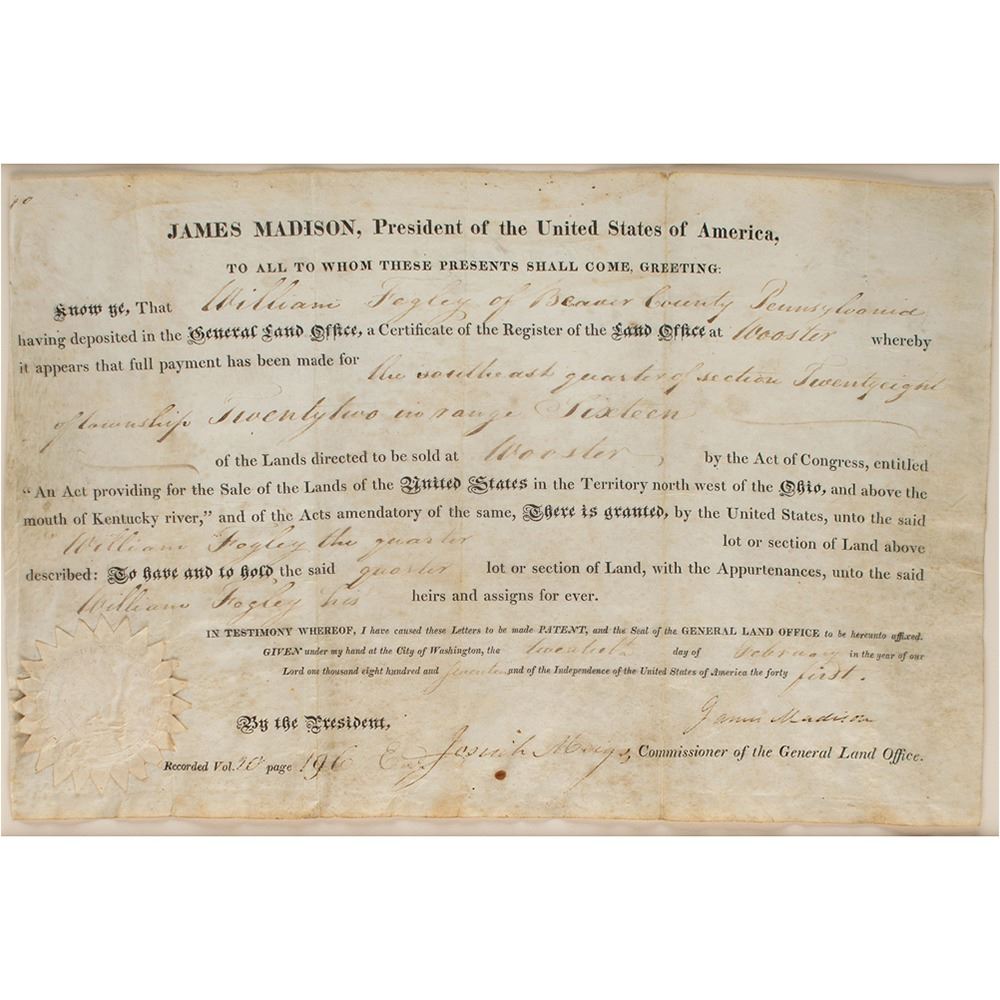 JAMES MADISON, President of the United States of America,
TO ALL TO WHOM THESE PRESENTS SHALL COME, GREETING:
Know ye, That William Fogley of Beaver County Pennsylvania
having deposited in the General Land Office, a Certificate of the Register of the Land Office at Wooster whereby
it appears that full payment has been made for the southeast quarter of section Twentyeight
of township Twentytwo in range Sixteen
of the Lands directed to be sold at Wooster, by the Act of Congress, entitled
"An Act providing for the Sale of the Lands of the United States in the Territory north west of the Ohio, and above the
mouth of Kentucky river," and of the Acts amendatory of the same, There is granted, by the United States, unto the said
William Fogley the quarter lot or section of Land above
described: To have and to hold the said quarter lot or section of Land, with the Appurtenances, unto the said
William Fogley his heirs and assigns for ever.
IN TESTIMONY WHEREOF, I have caused these Letters to be made PATENT, and the Seal of the GENERAL LAND OFFICE to be hereunto affixed.
GIVEN under my hand at the City of Washington, the twentieth day of February in the year of our
Lord one thousand eight hundred and seventeen and of the Independence of the United States of America the forty first.
By the President, James Madison
Josiah Meigs, Commissioner of the General Land Office.
Recorded Vol. 20 page 196